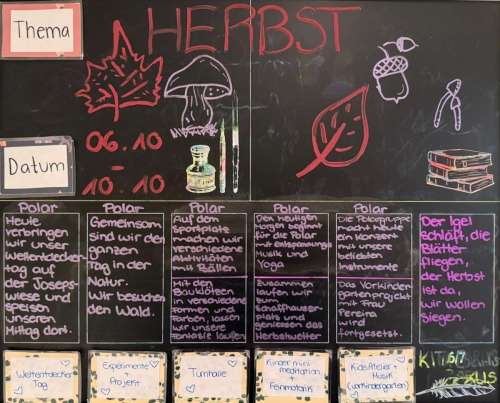 Thema
HERBST
Datum
06.10
-
10.10
Polar
Heute
verbringen
wir unser
Weltentdecker-
tag auf
der Josefs-
wiese und
speisen
unseren
Mittag dort.
Polar
Gemeinsam
sind wir den
ganzen
Tag in der
Natur.
Wir besuchen
den Wald.
Polar
Auf dem
Sportplatz
machen wir
verschiedene
Aktivitäten
mit Bällen
Mit den
Bauklötzen
in verschiedene
Formen und
Farben, lassen
wir unsere
Fantasie laufen
Polar
Den heutigen
Morgen beginnen
für die Polar
mit entspannungs
Musik und
Yoga
Zusammen
laufen wir
zum
Schaffhauser-
platz und
geniessen das
Herbstwetter
Polar
Die Polargruppe
macht heute
ein Konzert
mit unsere
beliebten
Instrumente
Das Vorkinder-
gartenprojekt
mit Frau
Pereira
wird
fortgesetzt.
Der Igel
schläft, die
Blätter
fliegen,
der Herbst
ist da,
wir wollen
siegen.
Weltentdecker
Tag
Experimente
+
Projekt
Turnhalle
Kinder mini
meditation
+
Feinmotorik
Kids Atelier +
Musik
(Vorkindergarten)